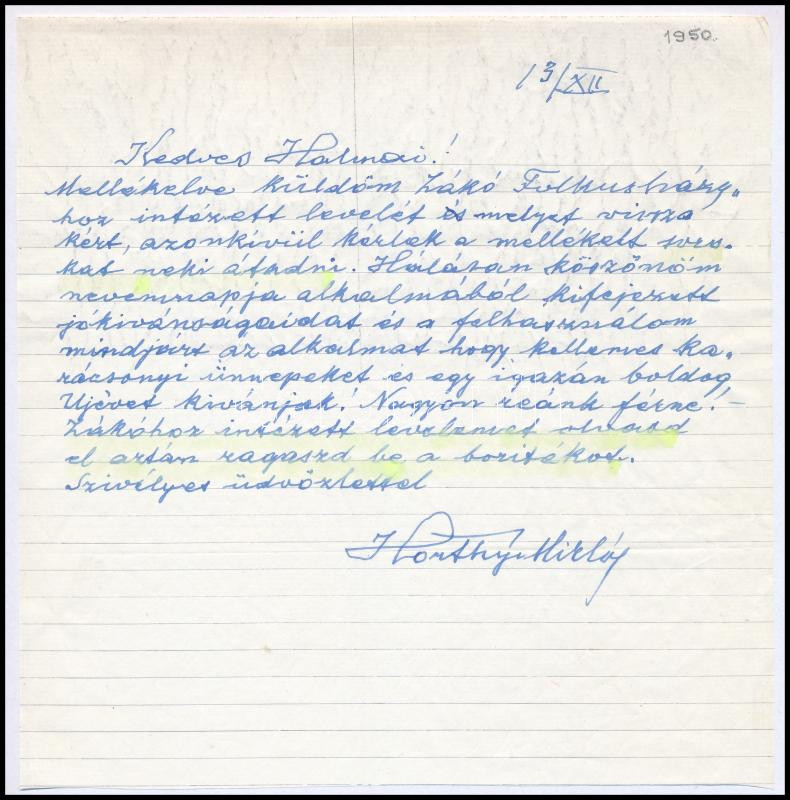 1950.
13/XII
Kedves Halmai!
Mellékelve küldöm Zákó
hoz intézett levelét és melyet vissza
kért, azonkívül kérlek a mellékelt soro-
kat neki átadni. Hálásan köszönöm
nevemnapja alkalmából kifejezett
jókivánságaidat és a felhasználom
mindjárt az alkalmat hogy kellemes ka-
rácsonyi ünnepeket és egy igazán boldog
Ujévet kivánjak! Nagyon reánk férne! -
Zákóhoz intézett levelemet olvasd
el aztán ragaszd be a boritékot.
Szivélyes üdvözlettel
Horthy Miklós